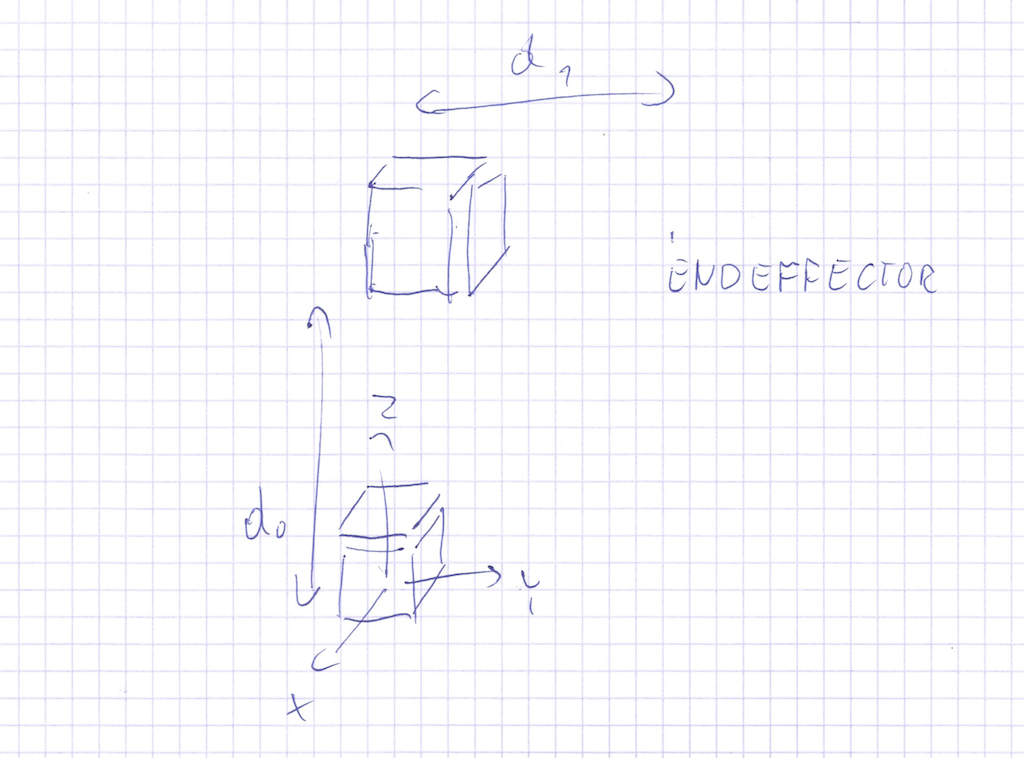 d1
ENDEFFECTOR
Z
d0
Y
X